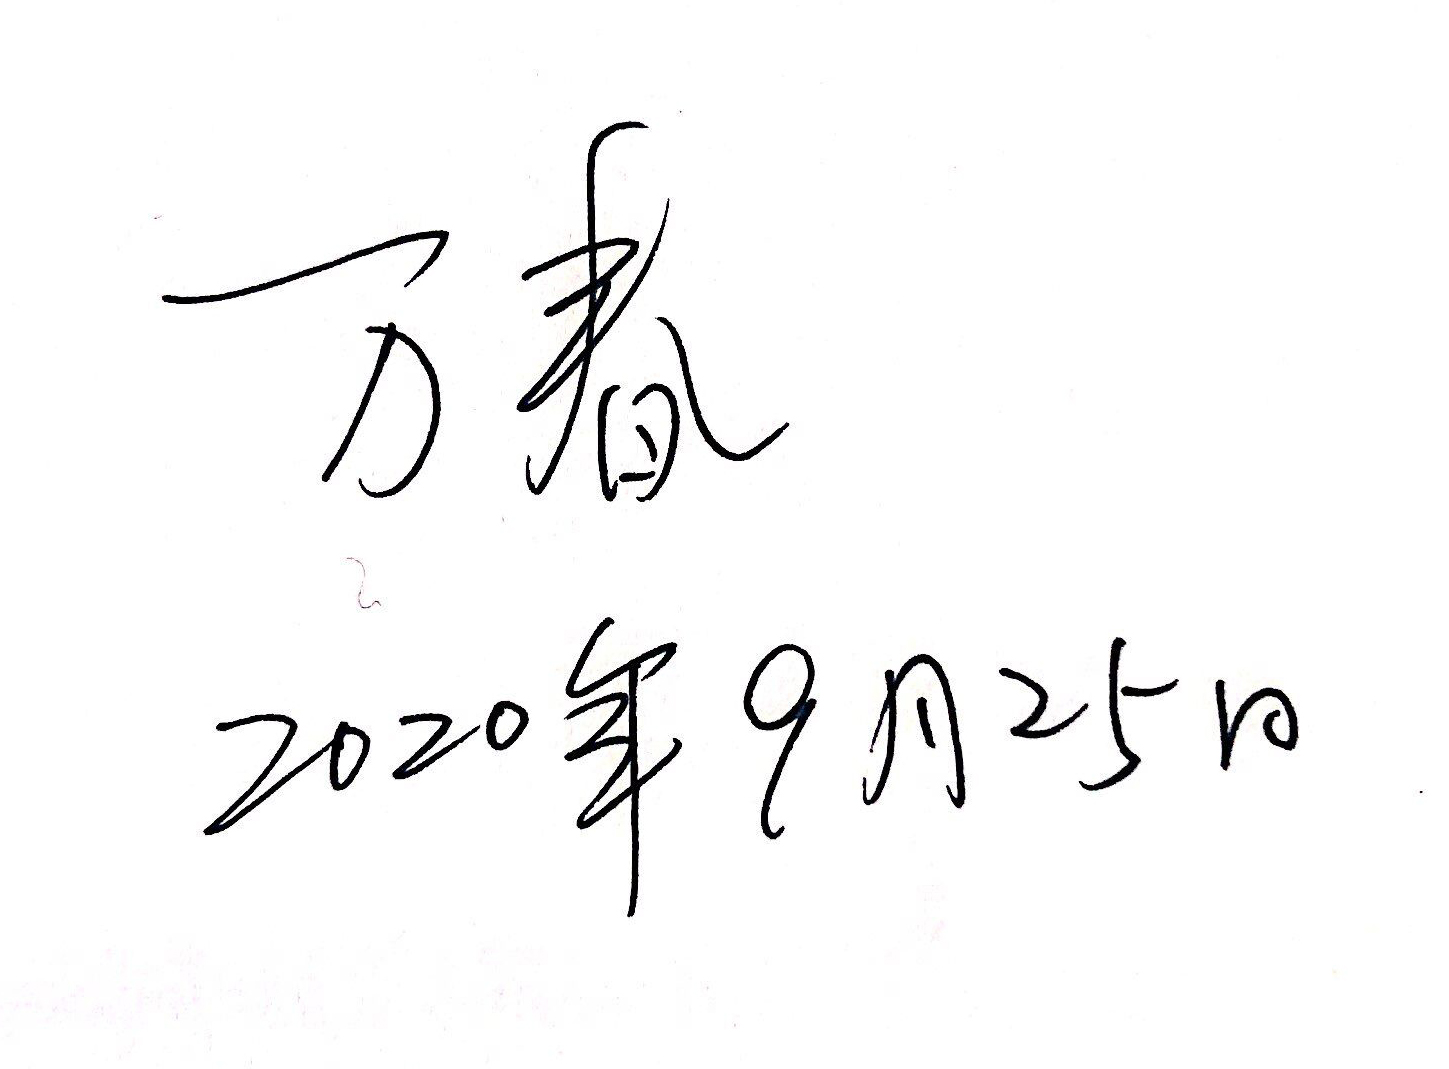 万春
2020年9月25日